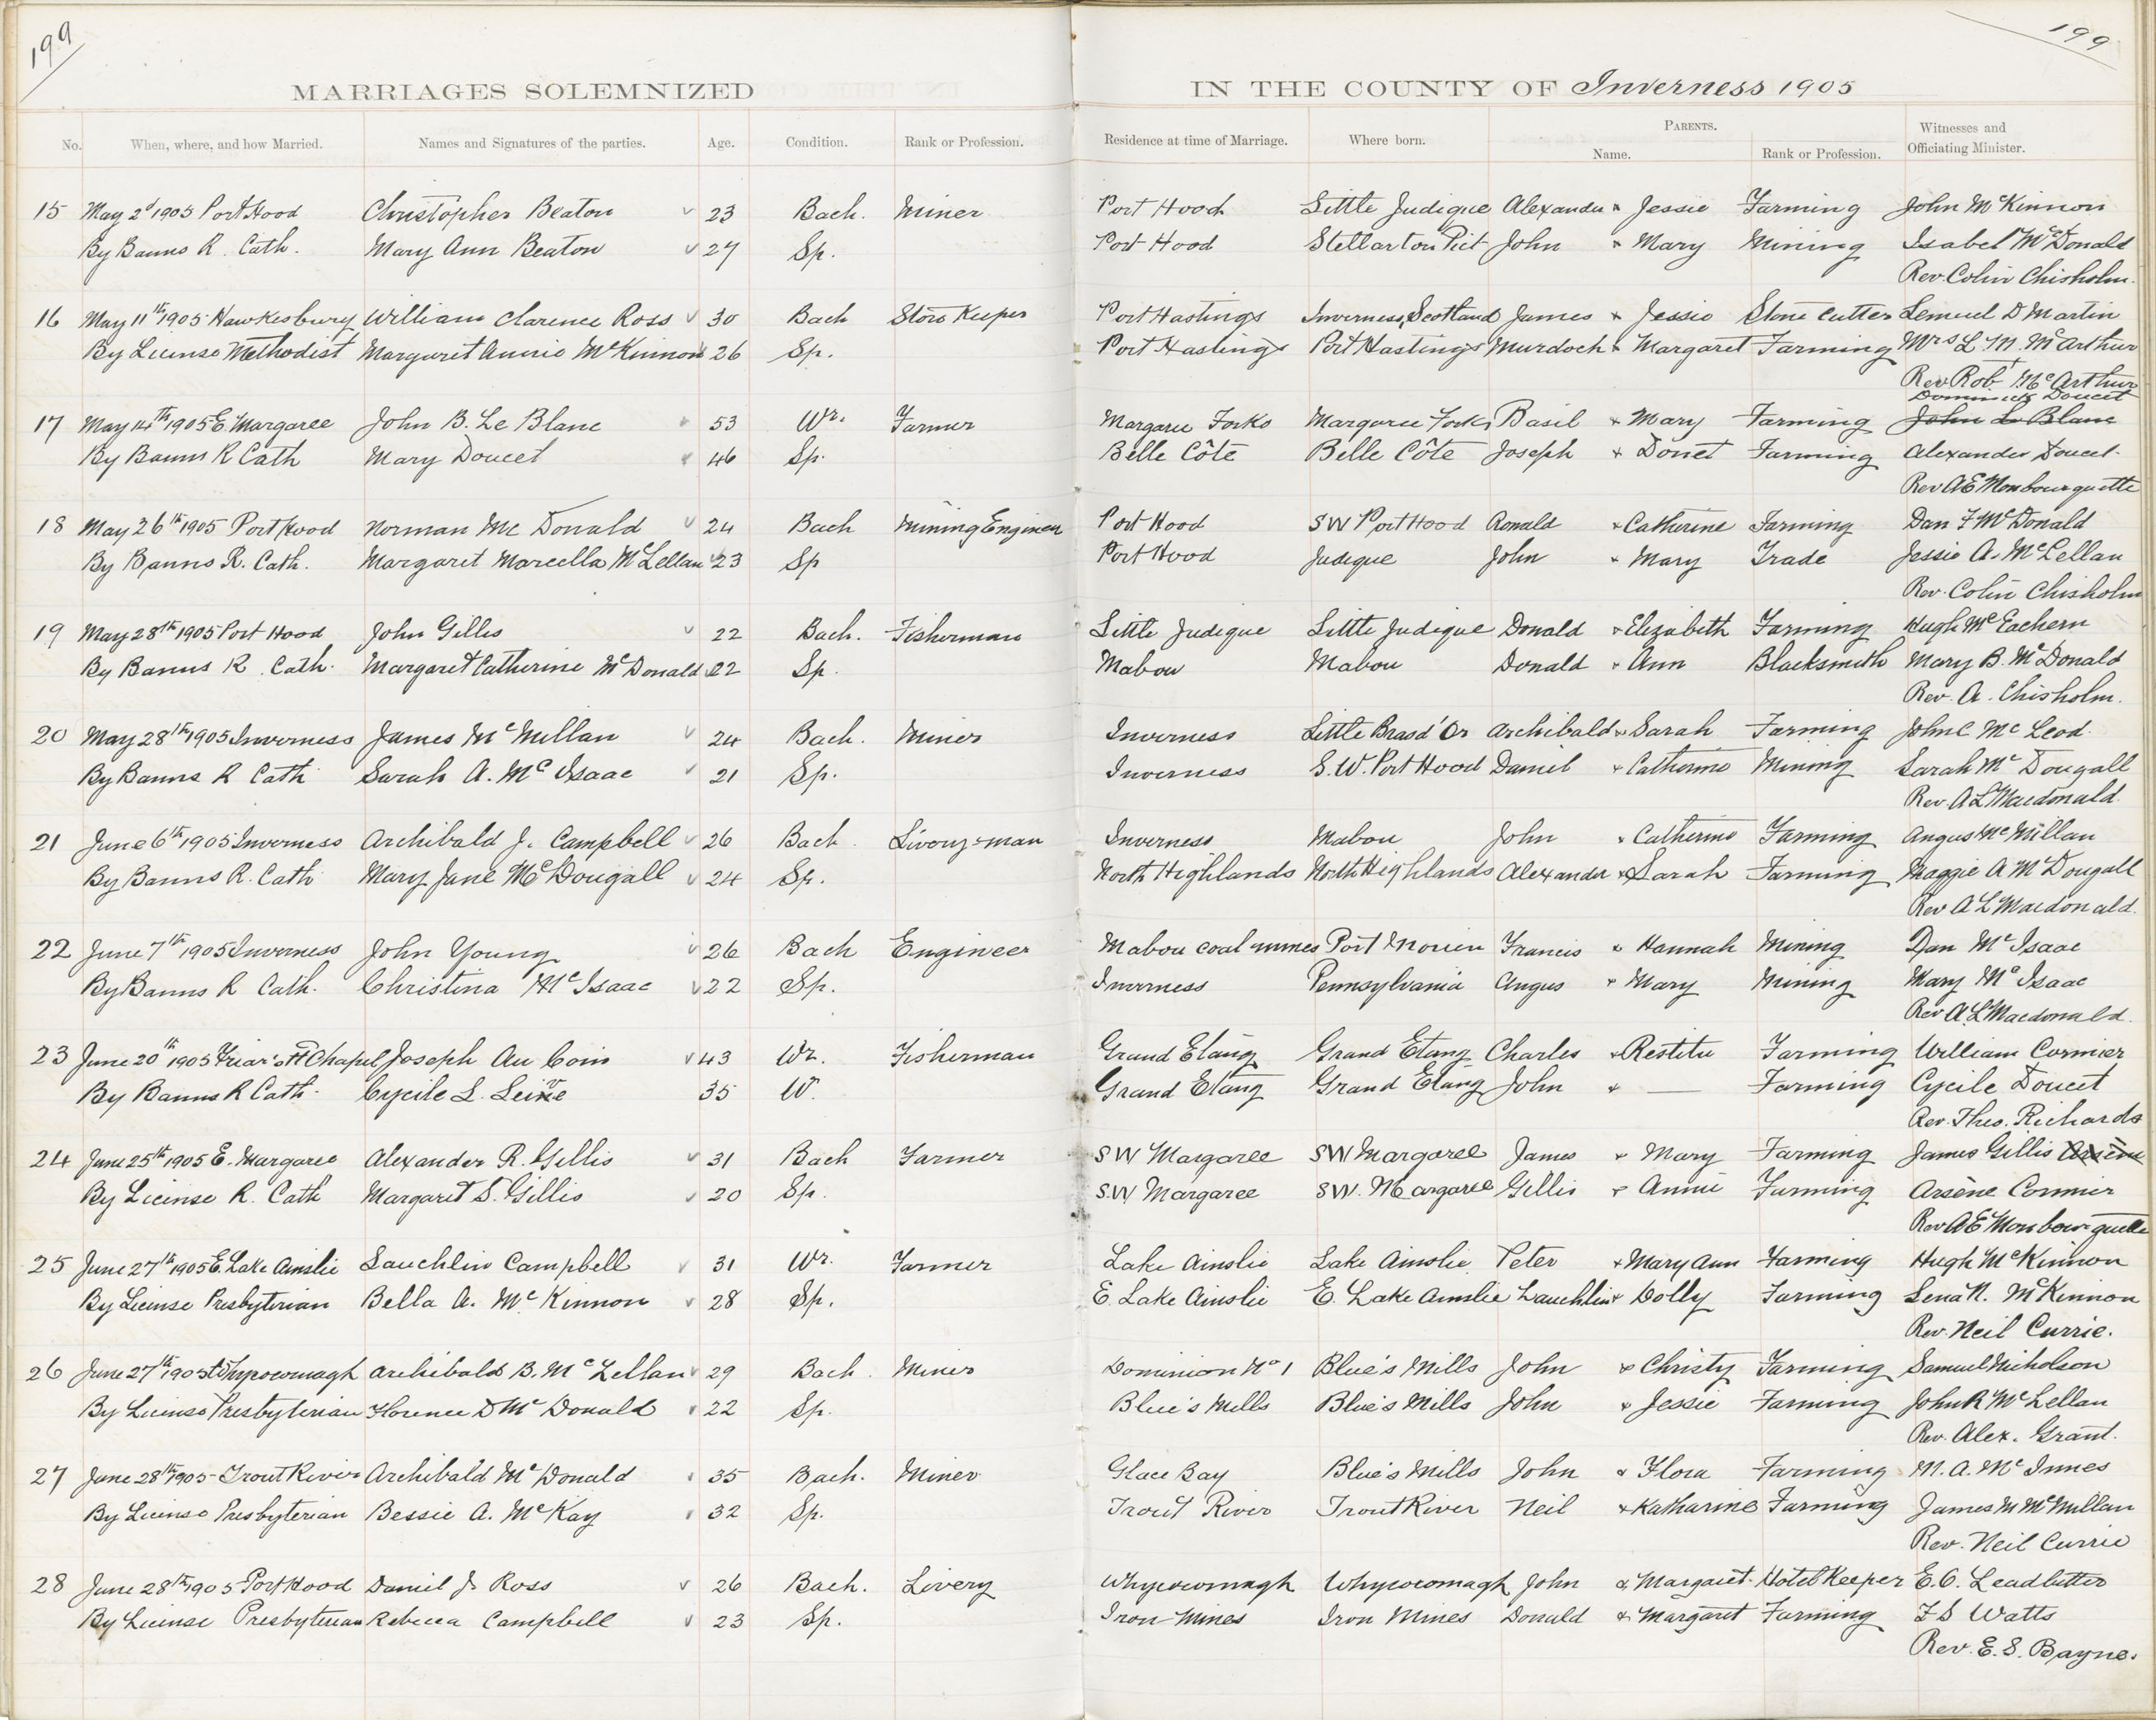 199
199
MARRIAGES SOLEMNIZED IN THE COUNTY OF Inverness 1905
No. When, where, and how Married. Names and Signatures of the parties. Age. Condition. Rank or Profession. Residence at time of Marriage. Where born. PARENTS. Name. Rank or Profession. Witnesses and Officiating Minister.
15 May 2d 1905 Port Hood Christopher Beaton 23 Bach. Miner Port Hood Little Judique Alexander & Jessie Farming John McKinnon
By Banns R. Cath. Mary Ann Beaton 27 Sp. Port Hood Stellarton Pict John & Mary Mining Isabel McDonald
Rev. Colin Chisholm.
16 May 11th 1905 Hawkesbury William Clarence Ross 30 Bach Store Keeper Port Hastings Inverness, Scotland James & Jessie Stone Cutter Lemuel D Martin
By License Methodist Margaret Annie McKinnon 26 Sp. Port Hastings Port Hastings Murdoch & Margaret Farming Mrs L. M. McArthur
Rev Robt McArthur
Dominick Doucet
17 May 14th 1905 E. Margaree John B. Le Blanc 53 Wr. Farmer Margaree Forks Margaree Forks Basil & Mary Farming John Le Blanc
By Banns R Cath Mary Doucet 46 Sp. Belle Côte Belle Côte Joseph & Donet Farming Alexander Doucet.
Rev A E Mombourquette
18 May 26th 1905 Port Hood Norman Mc Donald 24 Bach Mining Engineer Port Hood SW Port Hood Ronald & Catherine Farming Dan F McDonald
By Banns R. Cath. Margaret Marcella McLellan 23 Sp Port Hood Judique John & Mary Trade Jessie A. McLellan
Rev. Colin Chisholm
19 May 28th 1905 Port Hood John Gillis 22 Bach. Fisherman Little Judique Little Judique Donald & Elizabeth Farming Hugh McEachern
By Banns R. Cath. Margaret Catherine McDonald 22 Sp. Mabou Mabou Donald & Ann Blacksmith Mary B. McDonald
Rev. A. Chisholm.
20 May 28th 1905 Inverness James McMillan 24 Bach. Miner Inverness Little Brasd'Or Archibald & Sarah Farming John C McLeod.
By Banns R Cath Sarah A. McIsaac 21 Sp. Inverness S.W. Port Hood Daniel & Catherine Mining Sarah McDougall
Rev. A L Macdonald.
21 June 6th 1905 Inverness Archibald J. Campbell 26 Bach. Livery-man Inverness Mabou John & Catherine Farming Angus McMillan
By Banns R. Cath Mary Jane McDougall 24 Sp. North Highlands North Highlands Alexander & Sarah Farming Maggie A McDougall
Rev A L Macdonald.
22 June 7th 1905 Inverness John Young 26 Bach Engineer Mabou coal mines Port Morien Francis & Hannah Mining Dan McIsaac
By Banns R Cath. Christina McIsaac 22 Sp. Inverness Pennsylvania Angus & Mary Mining Mary McIsaac
Rev A. L Macdonald.
23 June 20th 1905 Friar's Hd Chapel Joseph Au Coin 43 Wr. Fisherman Grand Etang Grand Etang Charles & Restitu Farming William Cormier
By Banns R Cath. Cycile L. 35 W. Grand Etang Grand Etang John & — Farming Cycile Doucet
Rev. Theo. Richards
24 June 25th 1905 E. Margaree Alexander R. Gillis 31 Bach Farmer SW Margaree SW Margaree James & Mary Farming James Gillis Arsène
By License R. Cath Margaret S. Gillis 20 Sp. SW Margaree SW. Margaree Gillis & Annie Farming Arsène Cormier
Rev A E Mombourquette
25 June 27th 1905 E. Lake Ainslie Lauchlin Campbell 31 Wr. Farmer Lake Ainslie Lake Ainslie Peter & Mary Ann Farming Hugh McKinnon
By License Presbyterian Bella A. McKinnon 28 Sp. E. Lake Ainslie E. Lake Ainslie Lauchlin & Dolly Farming Lena N. McKinnon
Rev. Neil Currie.
26 June 27th 1905 Whycocomagh Archibald B. McLellan 29 Bach. Miner Dominion No 1 Blue's Mills John & Christy Farming Samuel Nicholson
By License Presbyterian Florence D McDonald 22 Sp. Blue's Mills Blue's Mills John & Jessie Farming John R McLellan
Rev. Alex. Grant.
27 June 28th 1905 Trout River Archibald McDonald 35 Bach. Miner Glace Bay Blue's Mills John & Flora Farming M. A. McInnes
By License Presbyterian Bessie A. McKay 32 Sp. Trout River Trout River Neil & Katharine Farming James M McMillan
Rev. Neil Currie
28 June 28th 1905 Port Hood Daniel J. Ross 26 Bach. Livery Whycocomagh Whycocomagh John & Margaret Hotel Keeper E. C. Leadbetter
By License Presbyterian Rebecca Campbell 23 Sp. Iron Mines Iron Mines Donald & Margaret Farming F S Watts
Rev. E. S. Bayne.